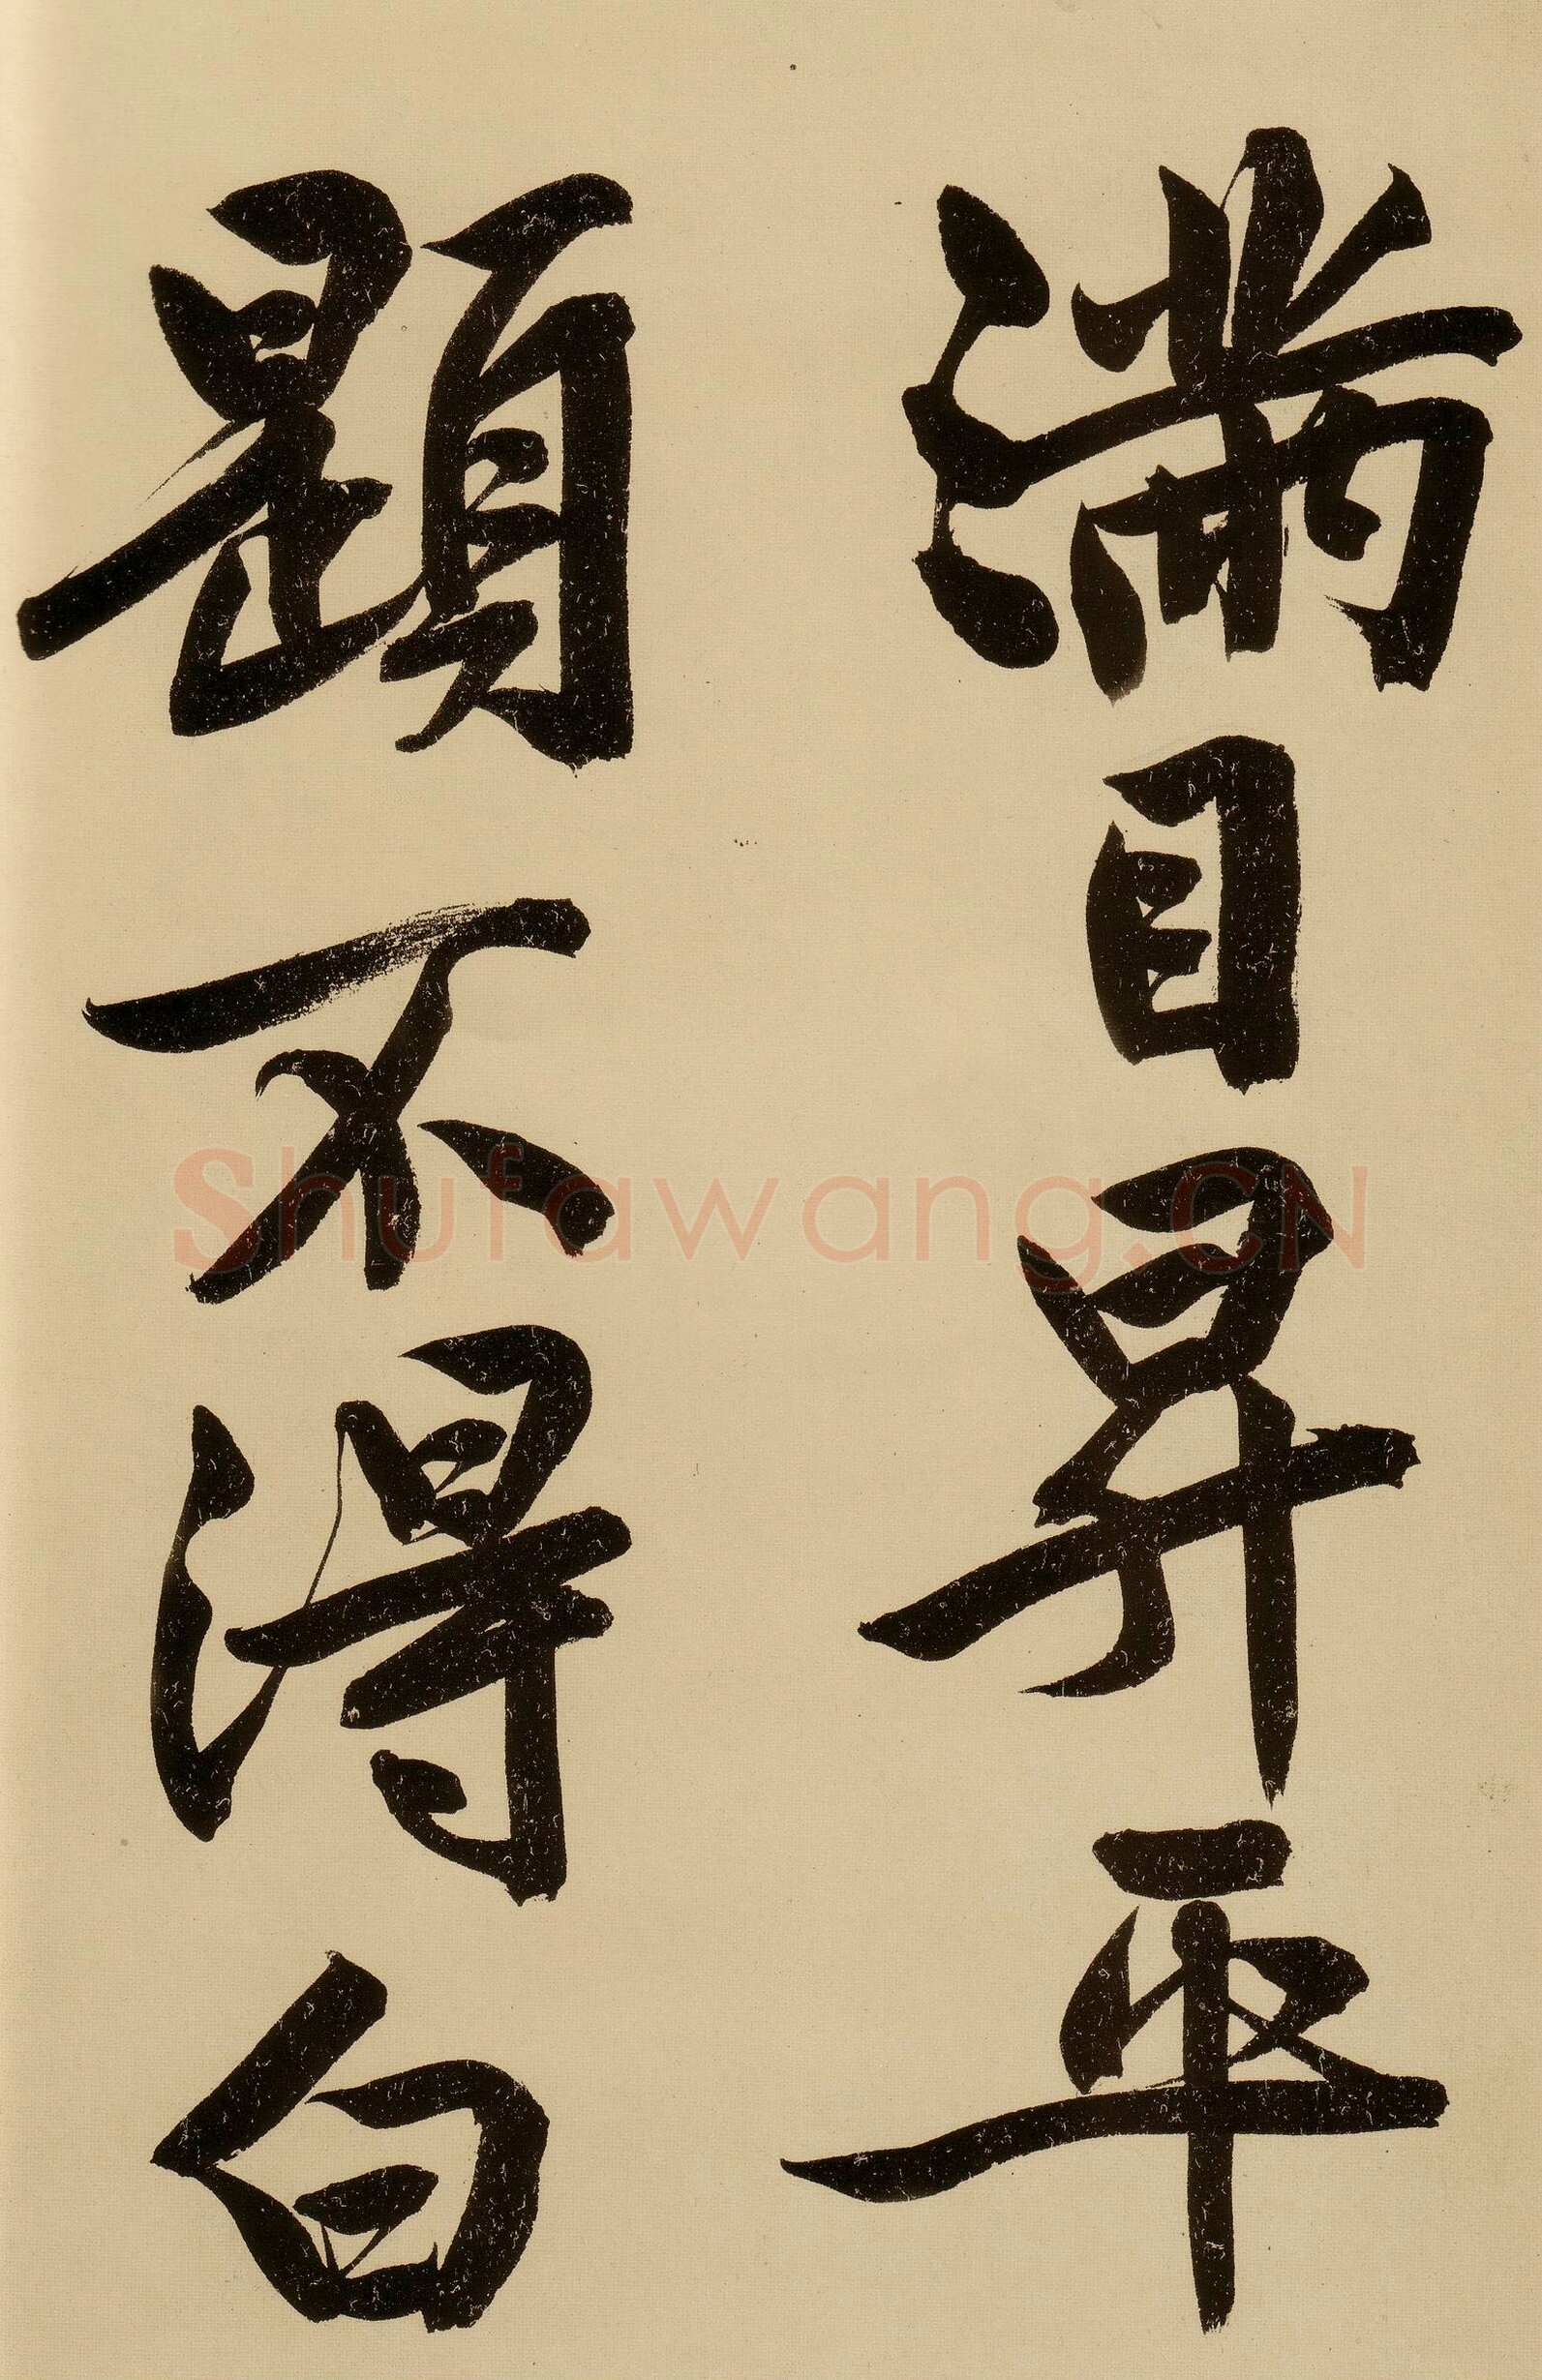 滿目昇平
題不得白
Shufawang.CN